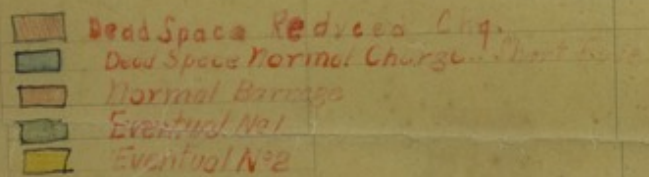 Dead Space Reduced Chg.
Dead Space Normal Charge.. Short
Normal Barrage
Eventual No1
Eventual No2